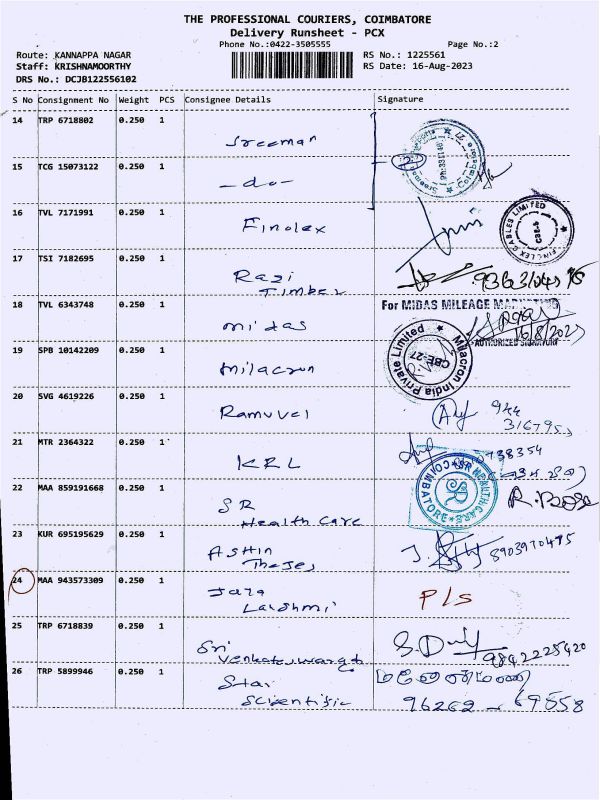 THE PROFESSIONAL COURIERS, COIMBATORE
Delivery Runsheet - PCX
Phone No.:0422-3505555 Page No.:2
Route: KANNAPPA NAGAR RS No.: 1225561
Staff: KRISHNAMOORTHY RS Date: 16-Aug-2023
DRS No.: DCJB122556102
S No Consignment No Weight PCS Consignee Details Signature
14 TRP 6718802 0.250 1
Sreeman
15 TCG 15073122 0.250 1
-do-
16 TVL 7171991 0.250 1
Finolex
FINOLEX CABLES LIMITED
17 TSI 7182695 0.250 1
Razi
Timber
18 TVL 6343748 0.250 1
For MIDAS MILEAGE
midas
16/8/2023
AUTHORIZED SIGNATORY
19 SPB 10142209 0.250 1
milacron
Milacron India Private Limited
CBE-27
20 SVG 4619226 0.250 1
Ramuvel
944
21 MTR 2364322 0.250 1
KRL
738354
22 MAA 859191668 0.250 1
SR
Health Care
SR HEALTH CARE
COIMBATORE
23 KUR 695195629 0.250 1
Ashin
8903970495
24 MAA 943573309 0.250 1
Jaya
Lakshmi
P/S
25 TRP 6718839 0.250 1
Sri
Venkateswara
9842225420
26 TRP 5899946 0.250 1
Star
Scientific
96262 - 69558